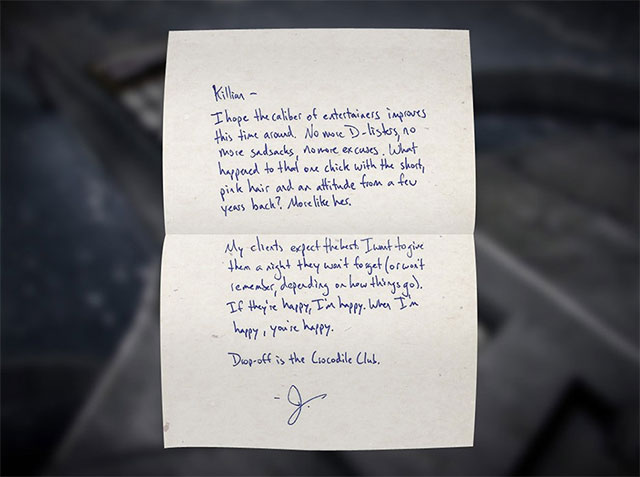 Killian -
I hope the caliber of entertainers improves
this time around. No more D-listers, no
more sadsacks, no more excuses. What
happened to that one chick with the short,
pink hair and an attitude from a few
years back? More like her.
My clients expect the best. I want to give
them a night they won't forget (or won't
remember, depending on how things go).
If they're happy, I'm happy. When I'm
happy, you're happy.
Drop-off is the Crocodile Club.
- J.